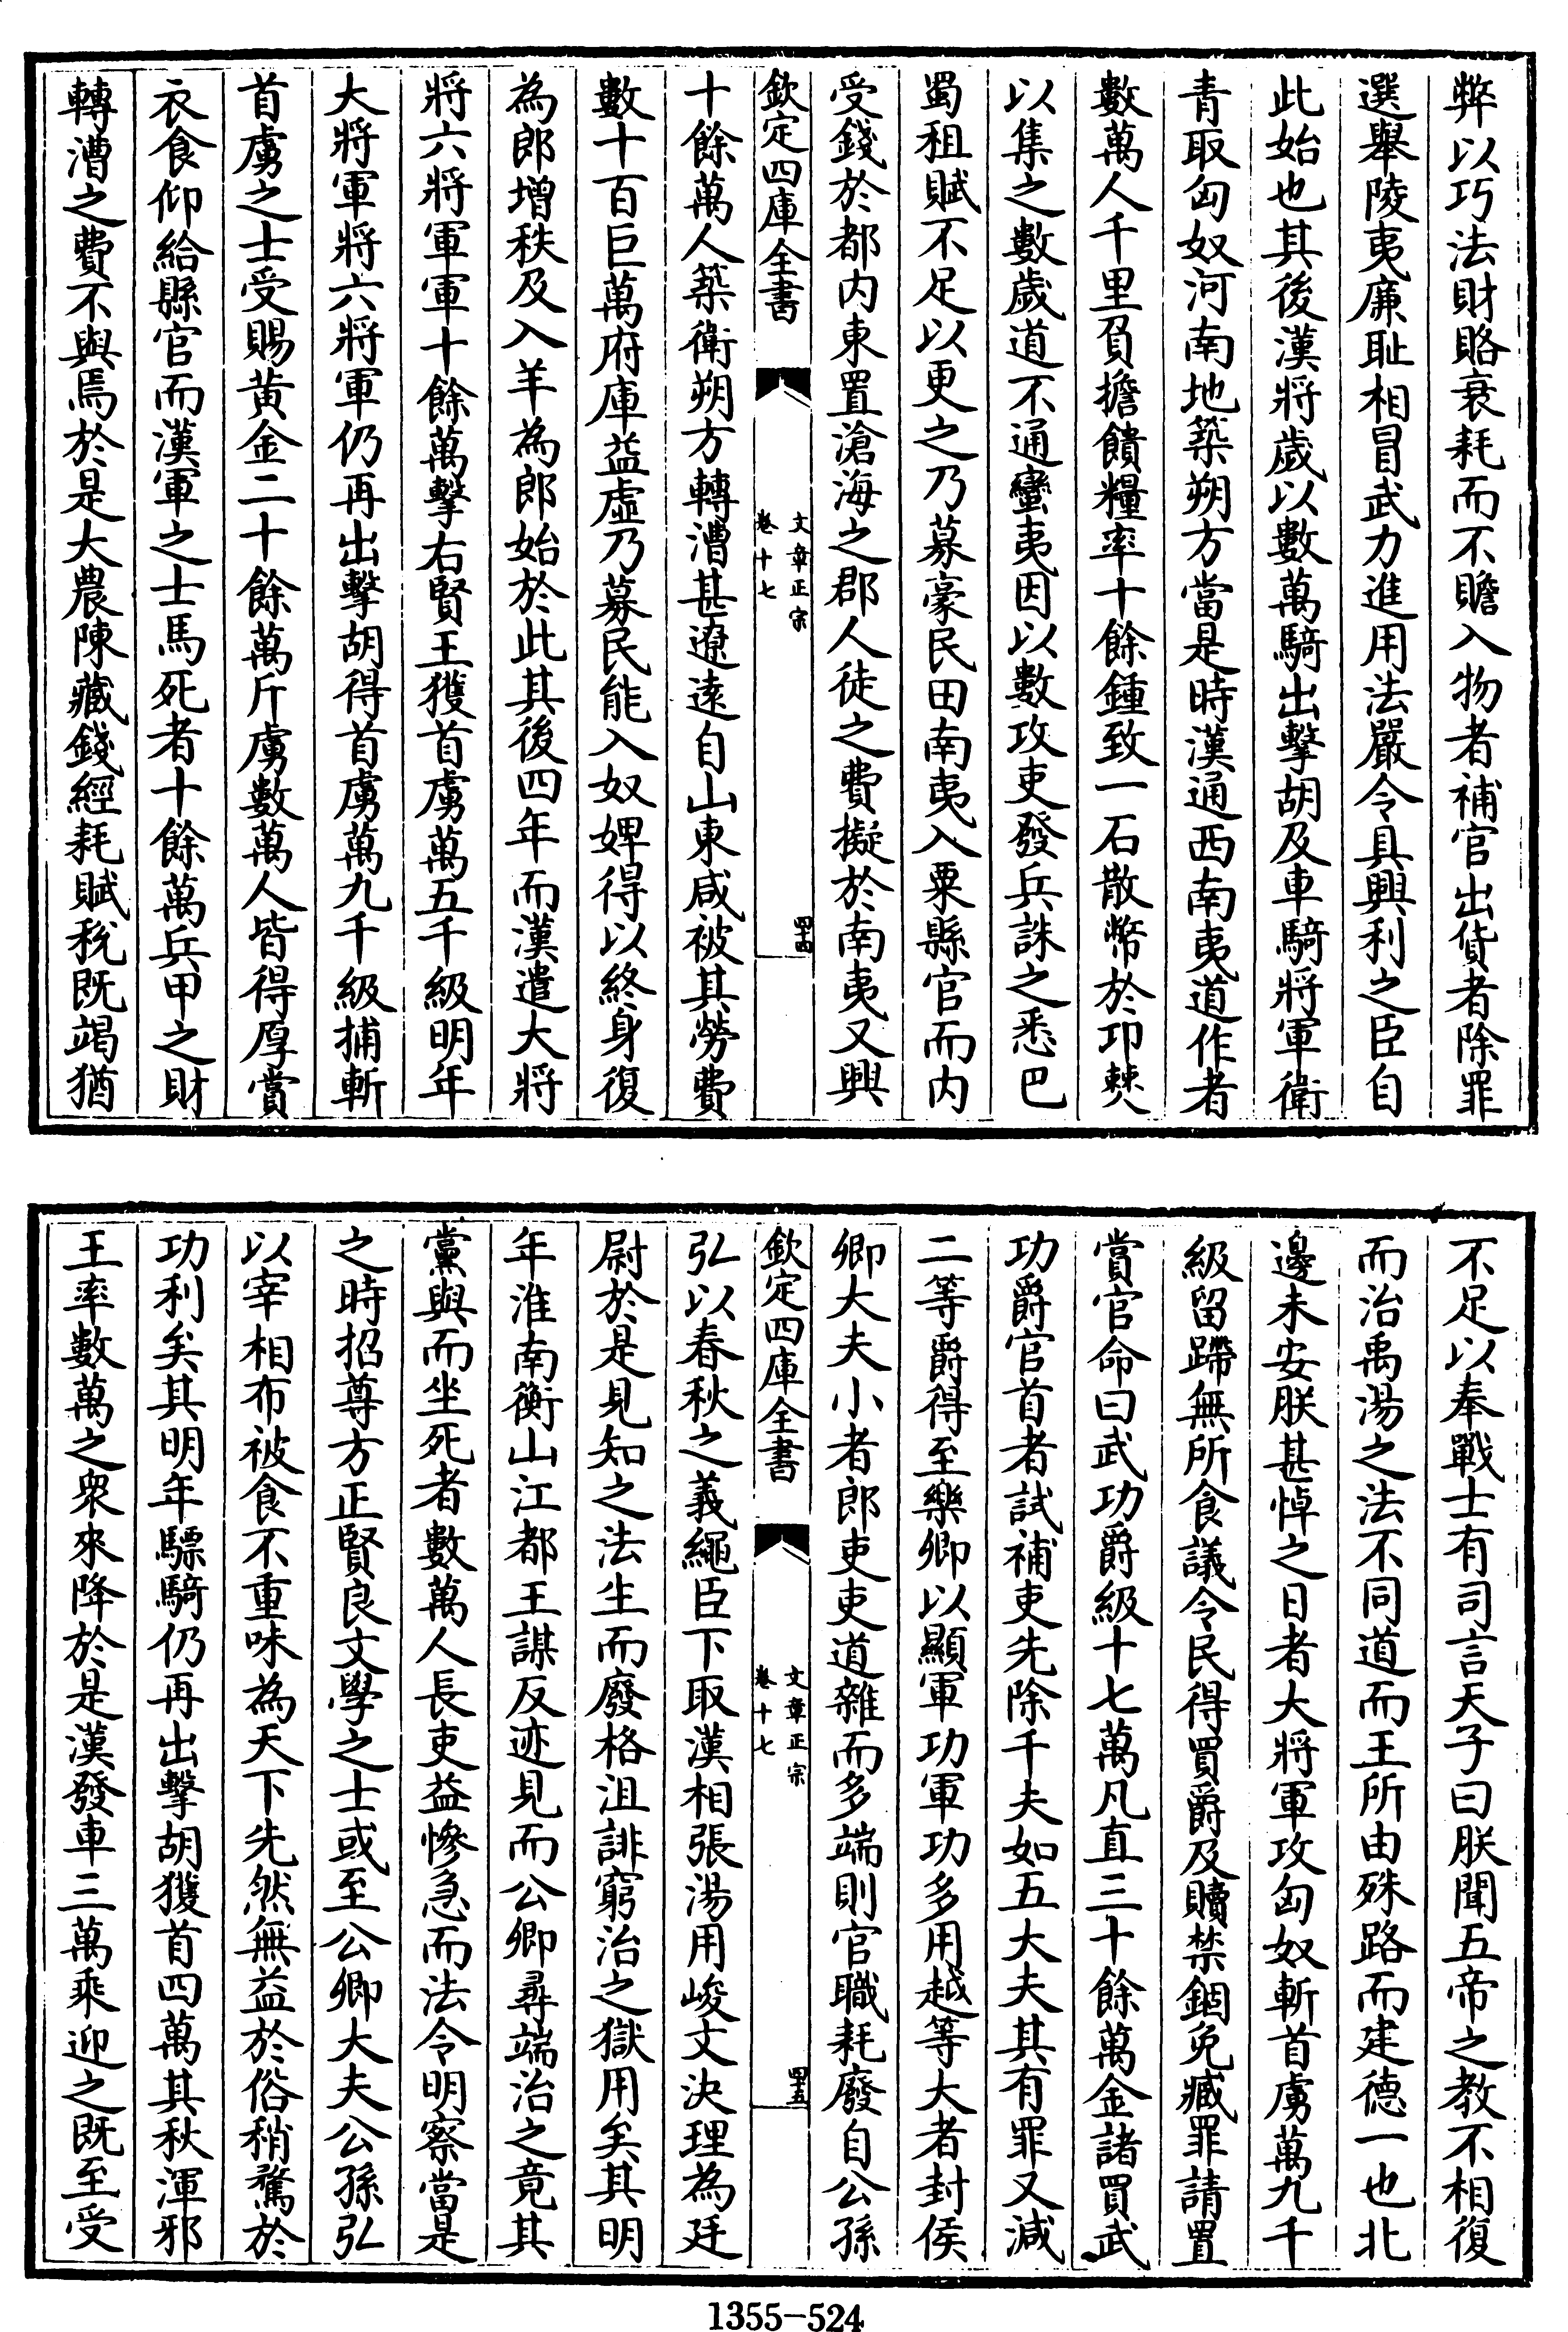 弊以巧法財賂衰耗而不贍入物者補官出貨者除罪
選舉陵夷廉耻相冒武力進用法嚴令具興利之臣自
此始也其後漢將歲以數萬騎出擊胡及車騎將軍衛
青取匈奴河南地築朔方當是時漢通西南夷道作者
數萬人千里負擔饋糧率十餘鍾致一石散幣於邛僰
以集之數歲道不通蠻夷因以數攻吏發兵誅之悉巴
蜀租賦不足以更之乃募豪民田南夷入粟縣官而内
受錢於都内東置滄海之郡人徒之費擬於南夷又興
欽定四庫全書
文章正宗
卷十七
四十四
十餘萬人築衛朔方轉漕甚遼遠自山東咸被其勞費
數十百巨萬府庫益虛乃募民能入奴婢得以終身復
為郎增秩及入羊為郎始於此其後四年而漢遣大將
將六將軍軍十餘萬擊右賢王獲首虜萬五千級明年
大將軍將六將軍仍再出擊胡得首虜萬九千級捕斬
首虜之士受賜黃金二十餘萬斤虜數萬人皆得厚賞
衣食仰給縣官而漢軍之士馬死者十餘萬兵甲之財
轉漕之費不與焉於是大農陳藏錢經耗賦稅既竭猶
不足以奉戰士有司言天子曰朕聞五帝之教不相復
而治禹湯之法不同道而王所由殊路而建德一也北
邊未安朕甚悼之日者大將軍攻匈奴斬首虜萬九千
級留蹛無所食議令民得買爵及贖禁錮免臧罪請置
賞官命曰武功爵級十七萬凡直三十餘萬金諸買武
功爵官首者試補吏先除千夫如五大夫其有罪又減
二等爵得至樂卿以顯軍功軍功多用越等大者封侯
卿大夫小者郎吏吏道雜而多端則官職耗廢自公孫
欽定四庫全書
文章正宗
卷十七
四十五
弘以春秋之義繩臣下取漢相張湯用峻文決理為廷
尉於是見知之法生而廢格沮誹窮治之獄用矣其明
年淮南衡山江都王謀反迹見而公卿尋端治之竟其
黨與而坐死者數萬人長吏益慘急而法令明察當是
之時招尊方正賢良文學之士或至公卿大夫公孫弘
以宰相布被食不重味為天下先然無益於俗稍騖於
功利矣其明年驃騎仍再出擊胡獲首四萬其秋渾邪
王率數萬之衆來降於是漢發車三萬乘迎之既至受
1355-524